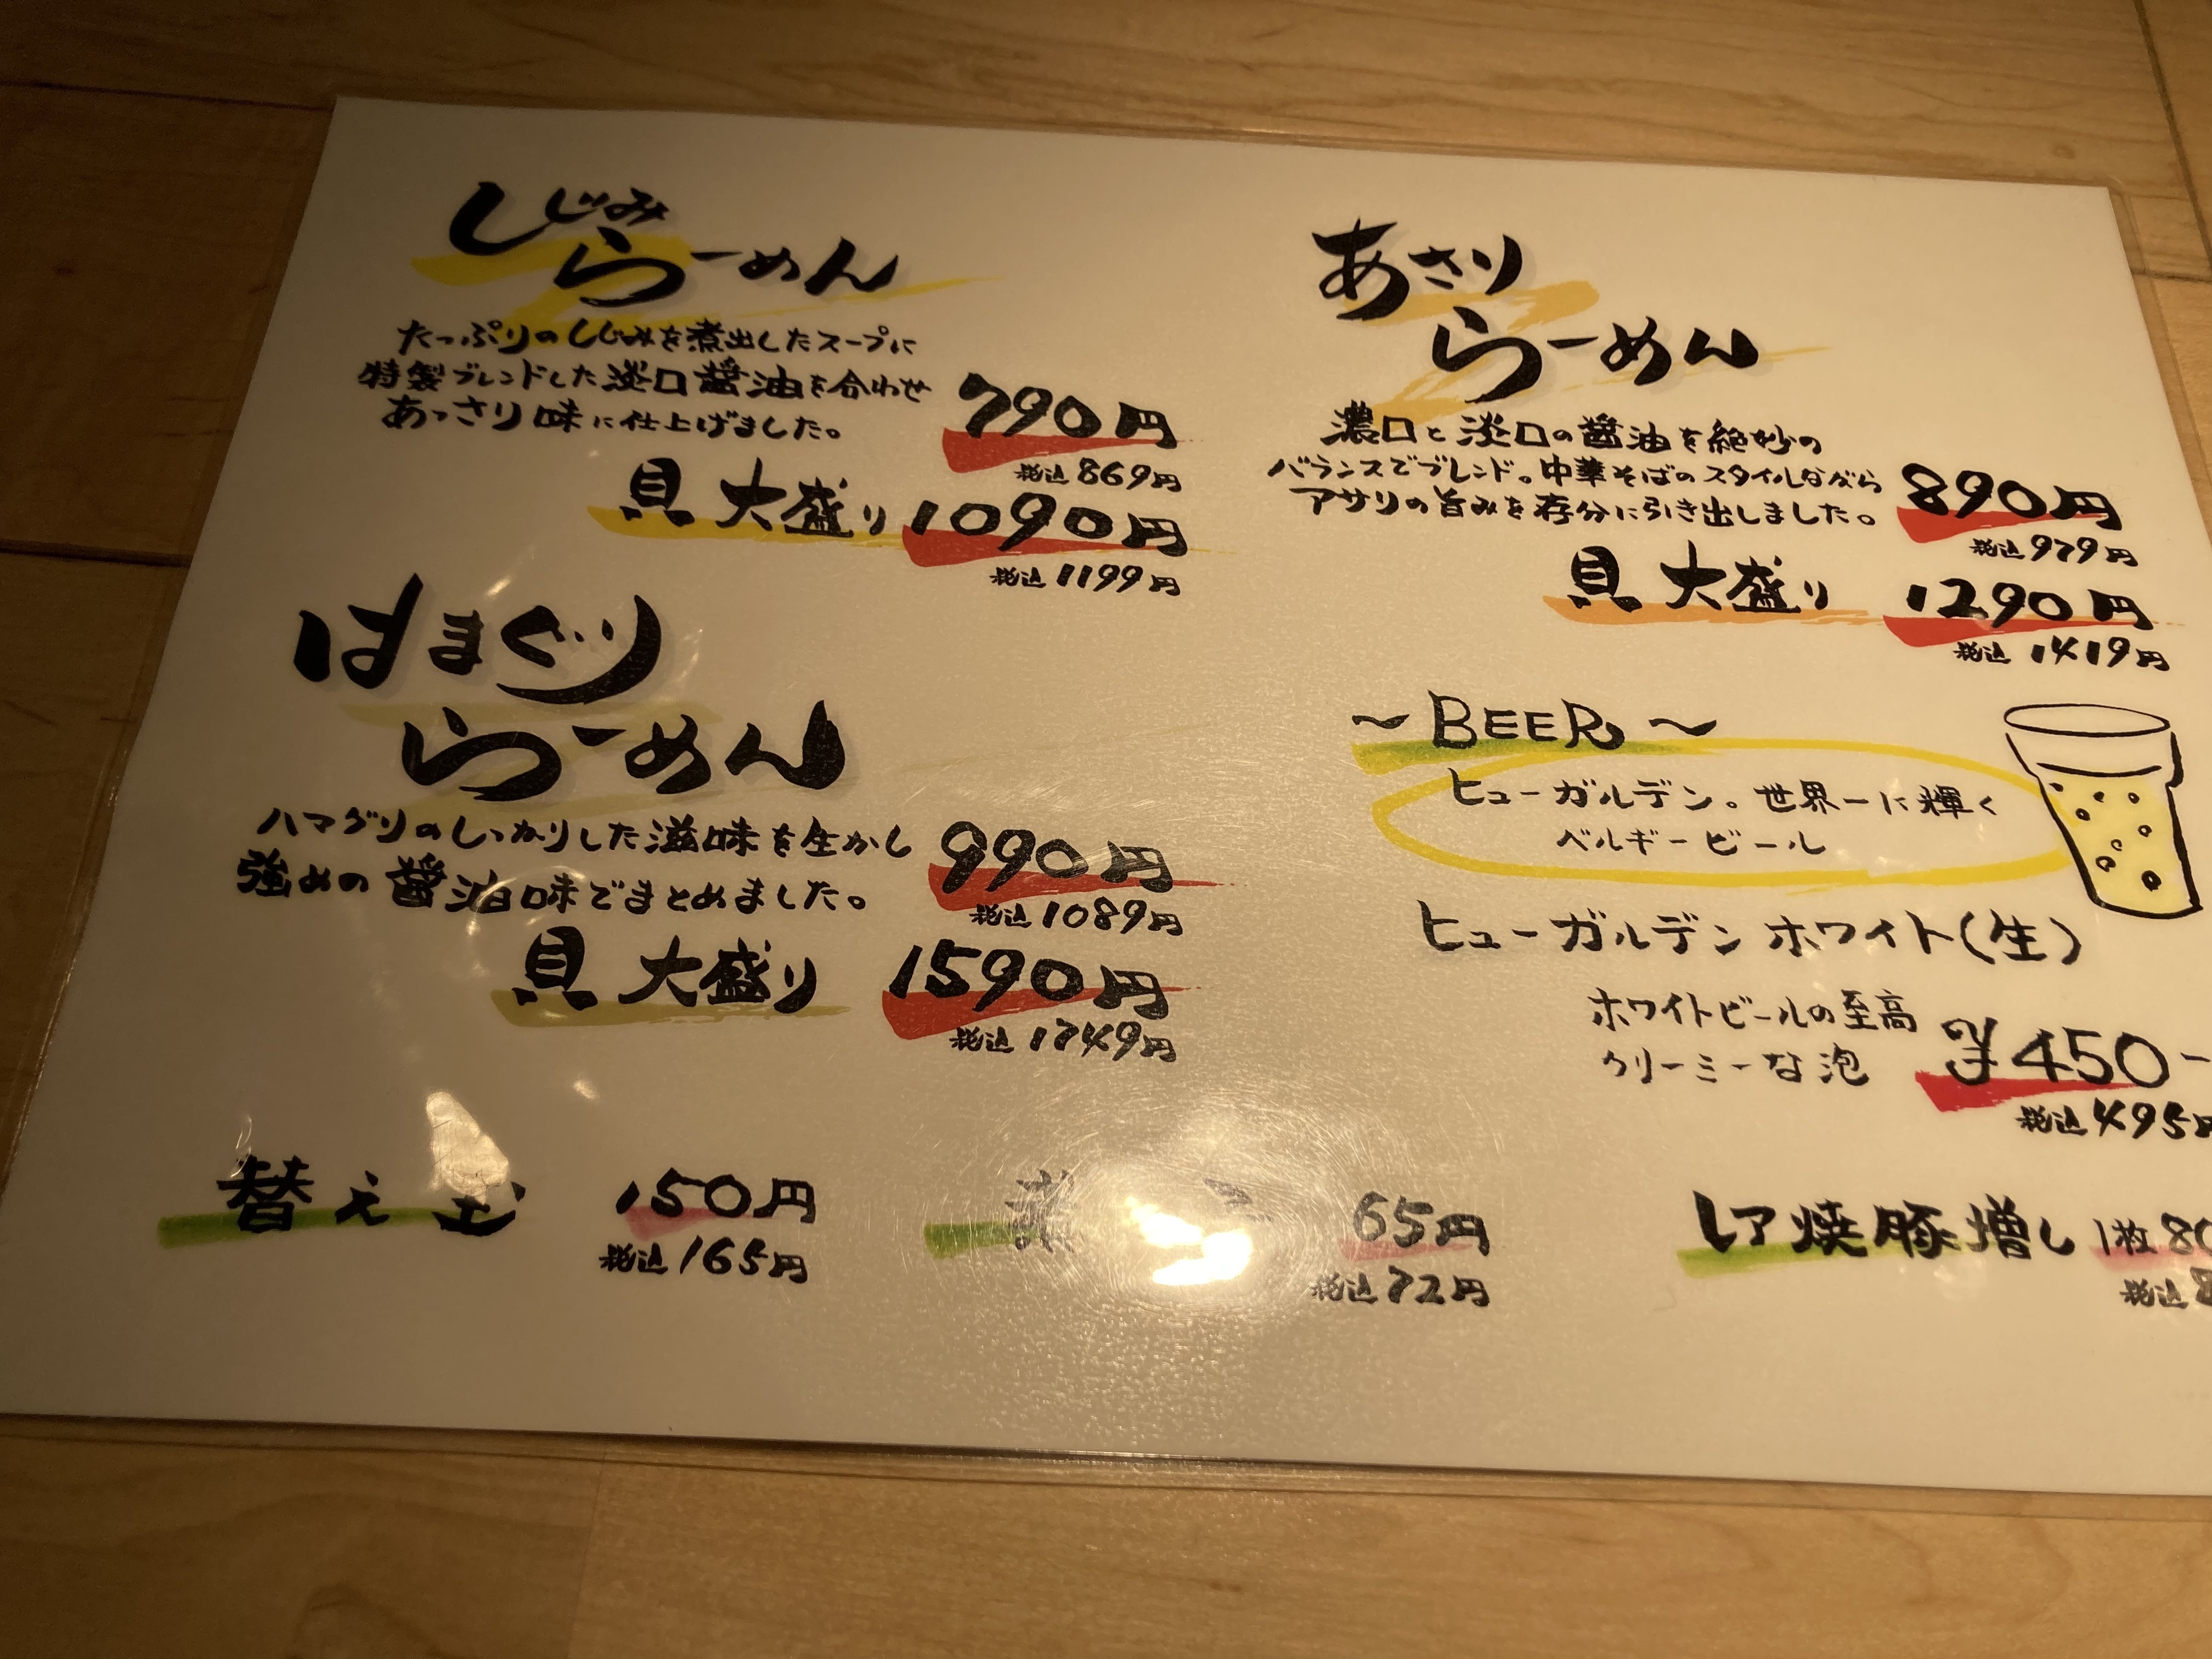 しじみ
らーめん
たっぷりのしじみを煮出したスープに
特製ブレンドした淡口醤油を合わせ
あっさり味に仕上げました。
790円
税込869円
貝大盛り 1090円
税込1199円
はまぐり
らーめん
ハマグリのしっかりした滋味を生かし
強めの醤油味でまとめました。
990円
税込1089円
貝大盛り 1590円
税込1749円
あさり
らーめん
濃口と淡口の醤油を絶妙の
バランスでブレンド。中華そばのスタイルながら
アサリの旨みを存分に引き出しました。
890円
税込979円
貝大盛り 1290円
税込1419円
～BEER～
ヒューガルデン。世界一に輝く
ベルギービール
ヒューガルデンホワイト(生)
ホワイトビールの至高
クリーミーな泡
¥450-
税込495円
替え玉 150円
税込165円
65円
税込72円
レア焼豚増し 1枚
税込